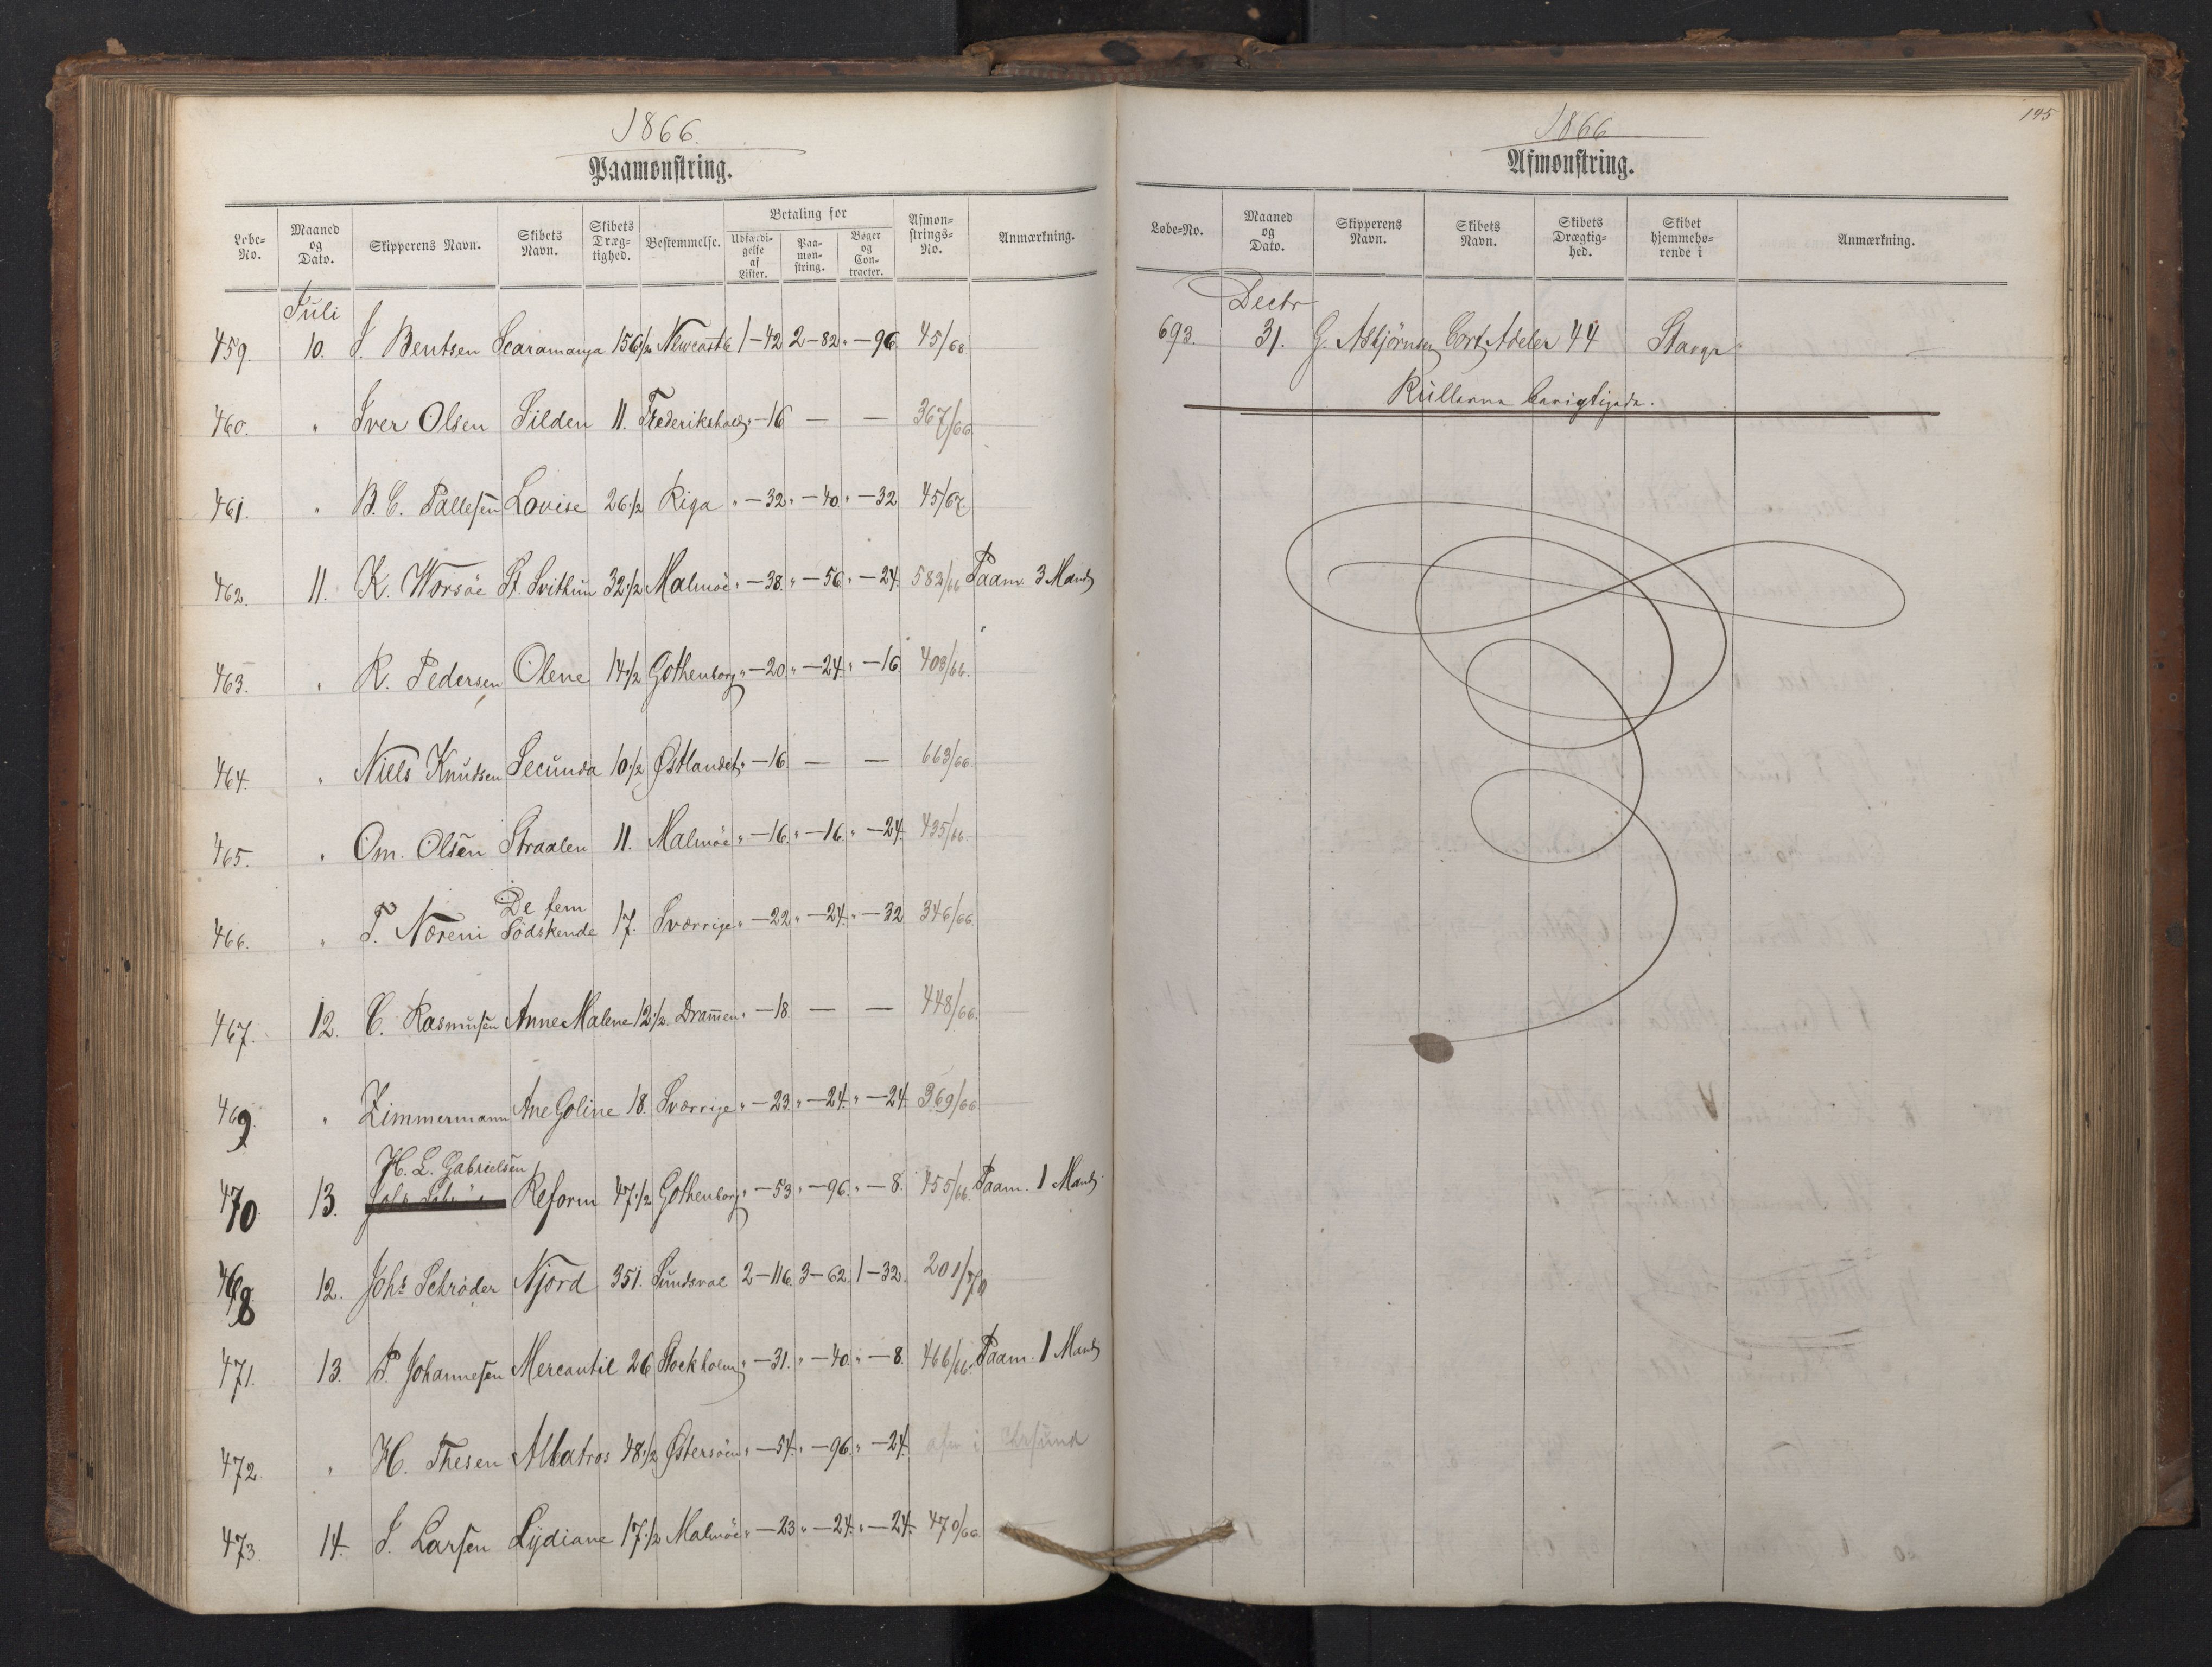 1866.
Paamønstring.
Løbe-No. Maaned og Dato. Skipperens Navn. Skibets Navn. Skibets Dræg-tighed. Bestemmelse. Betaling for Udfærdi-gelse af Lister. Paa-møn-string. Bøger og Con-tracter. Afmøn-strings-No. Anmærkning.
Juli
459. 10. J. Bentsen Scaramanga 156 1/2 Newcastle 1-42 2-82 " -96. 45/68
460. " Iver Olsen Silden 11. Frederikshald " -16 — — 367/66
461. " B. C. Pallesen Lovise 26 1/2 Riga " -32 " -40 " -32 45/67
462. 11. K. Worsöe St. Svithun 32 1/2 Malmöe " -38. " -56 " -24. 582/66 Paam. 3 Mand
463. " R. Pedersen Olene 14 1/2 Gothenborg " -20. " -24. " -16. 403/66.
464. " Niels Knudsen Secunda 10 1/2 Østlandet " -16. — — 663/66.
465. " Om. Olsen Straalen 11. Malmöe " -16. " -16. " -24. 435/66.
466. " T. Noreni De fem Södskende 17. Sværrige " -22 " -24. " -32 346/66
467. 12. C. Rasmusen Anne Malene 12 1/2. Dramen " -18. — — 448/66.
469. " Zimmermann Ane Goline 18. Sværrige " -23. " -24. " -24. 369/66
470 13. H. L. Gabrielsen Reform 47 1/2 Gothenborg " -53 " -96. " -8. 455/66. Paam. 1 Mand
468 12. Johs Schröder Njord 351. Sundsval 2-116. 3-62. 1-32. 201/70
471. 13. P. Johannesen Mercantil 26 Stockholm " -31. " -40. " -8. 466/66. Paam. 1 Mand
472. " H. Thesen Albatros 48 1/2 Østersöen " -54. " -96. " -24. afm i
473. 14. J. Larsen Lydiane 17 1/2 Malmöe " -23 " -24. " -24. 470/66
145
1866
Afmønstring.
Løbe-No. Maaned og Dato. Skipperens Navn. Skibets Navn. Skibets Drægtig-hed. Skibet hjemmehø-rende i Anmærkning.
Decbr
693. 31. G. Asbjörnsen Cort Adeler 44 Stavgr